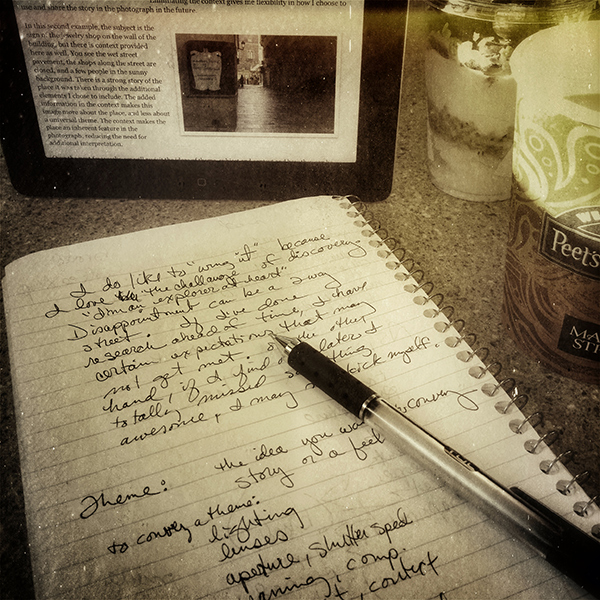 Examining the context gives me flexibility in how I choose to
use and share the story in the photograph in the future.
In this second example, the subject is the
sign on the jewelry shop on the wall of the
building, but there is context provided
here as well. You see the wet street
pavement, the shops along the street are
closed, and a few people in the sunny
background. There is a strong story of the
place it was taken through the additional
elements I chose to include. The added
information in the context makes this
image more about the place, and less about
a universal theme. The context makes the
place an inherent feature in the
photograph, reducing the need for
additional interpretation.
Peet's
I do like to "wing it" because
I love the challenge of discovery
"I'm an explorer at heart"
Disappointment can be a 2-way
street. If I've done
research ahead of time, I have
certain expectations that may
not get met. the other
hand, if I find later I
totally missed something
awesome, I may kick myself.
Theme: the idea you discovery
story or a feel
to convey a theme:
lighting
lenses
aperture, shutter speed
comp.
context